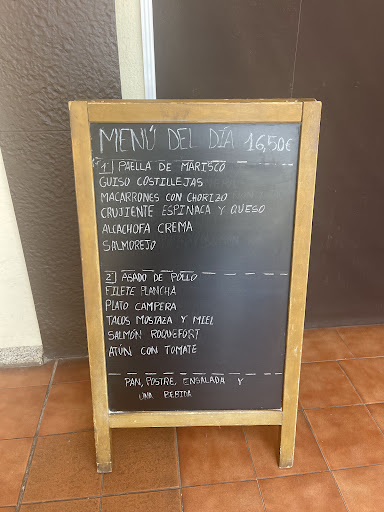 MENÚ DEL DÍA 16,50€
1) PAELLA DE MARISCO
GUISO COSTILLEJAS
MACARRONES CON CHORIZO
CRUJIENTE ESPINACA Y QUESO
ALCACHOFA CREMA
SALMOREJO
2) ASADO DE POLLO
FILETE PLANCHA
PLATO CAMPERA
TACOS MOSTAZA Y MIEL
SALMÓN ROQUEFORT
ATÚN CON TOMATE
PAN, POSTRE, ENSALADA Y
UNA BEBIDA